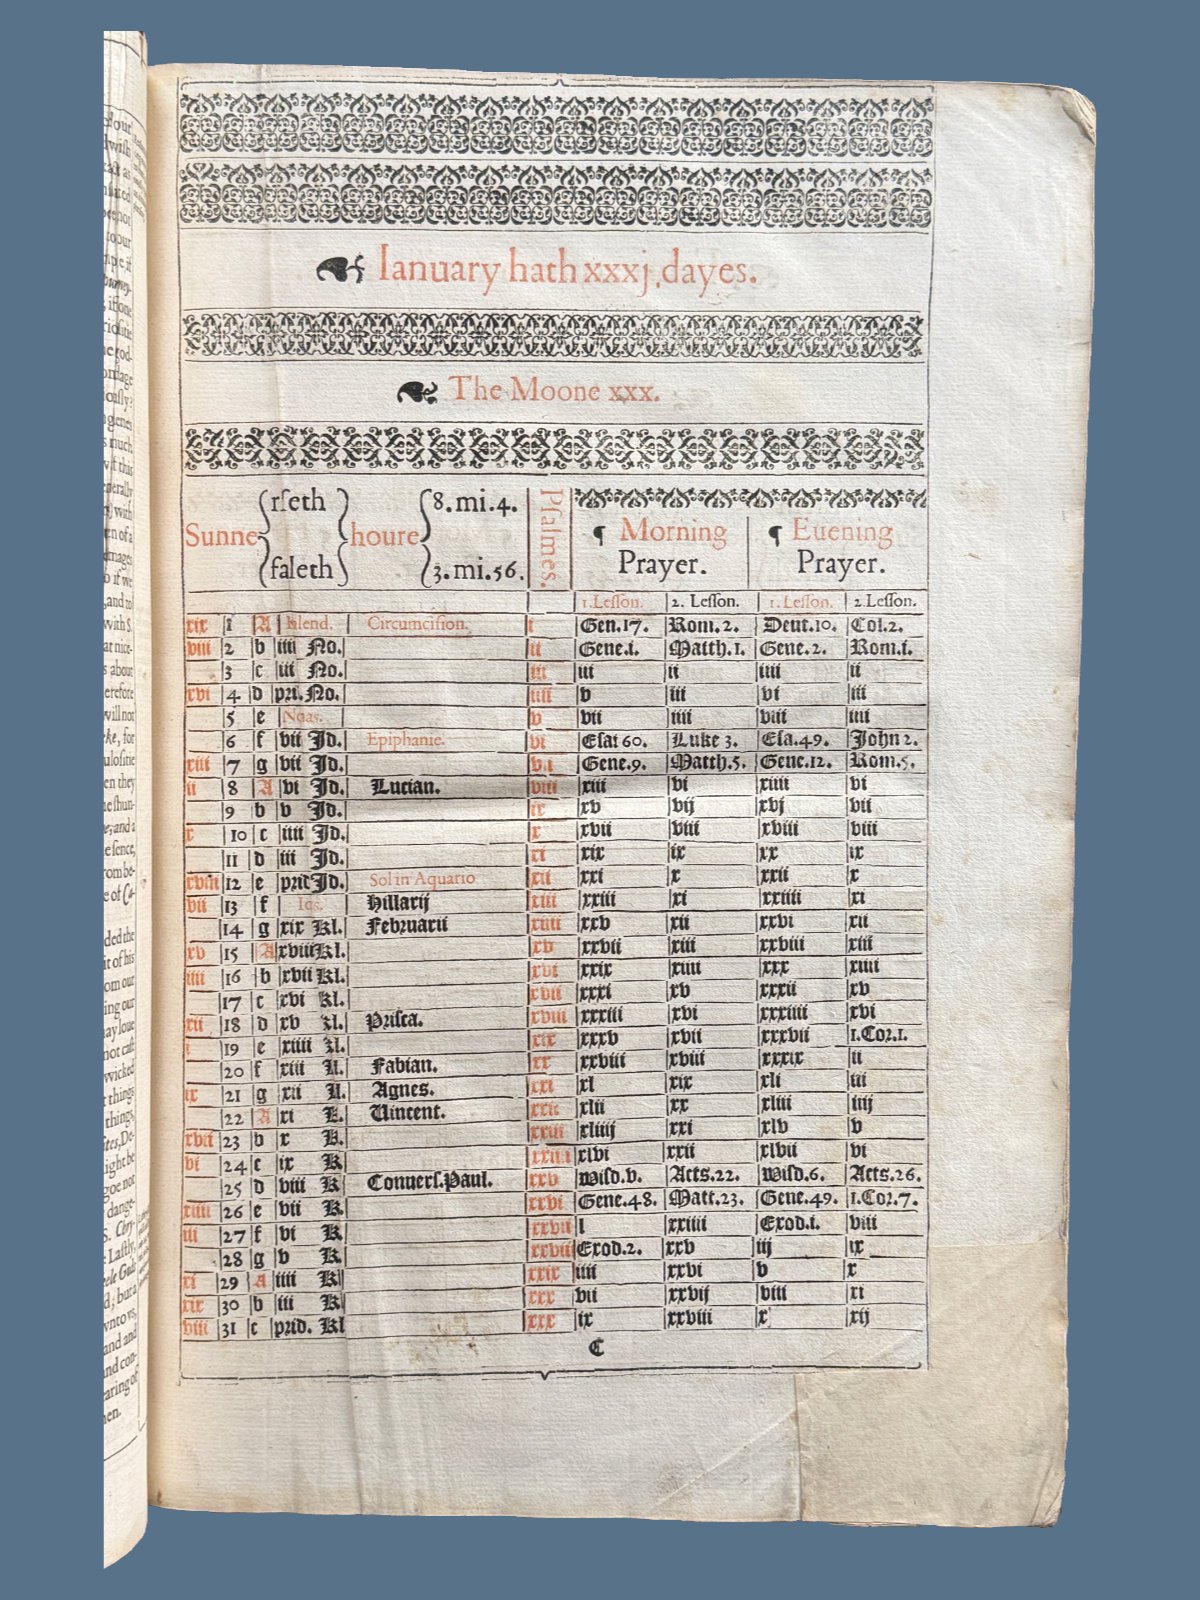 Ianuary hath xxxj, dayes.
The Moone xxx.
Sunne { rſeth faleth } houre { 8. mi. 4. 3. mi. 56.
Pſalmes.
¶ Morning Prayer.
¶ Euening Prayer.
1. Leſſon. 2. Leſſon. 1. Leſſon. 2. Leſſon.
xix 1 A Klend. Circumciſion. i Gen. 17. Rom. 2. Deut. 10. Col. 2.
viii 2 b iiii No. ii Gene. i. Matth. 1. Gene. 2. Rom. i.
3 c iii No. iii iii ii iiii ii
xvi 4 d pri. No. iiii v iii vi iii
5 e Noas. v vii iiii viii iiii
6 f vii Jd. Epiphanie. vi Eſai 60. Luke 3. Eſa. 49. John 2.
xiii 7 g vii Jd. vii Gene. 9. Matth. 5. Gene. 12. Rom. 5.
ii 8 A vi Jd. Lucian. viii xiii vi xiiii vi
9 b v Jd. ix xv vij xvj vii
x 10 c iiii Jd. x xvii viii xviii viii
11 d iii Jd. xi xix ix xx ix
xviii 12 e prid Jd. Sol in Aquario xii xxi x xxii x
vii 13 f Ids. Hillarij xiii xxiii xi xxiiii xi
14 g xix Kl. Februarii xiiii xxv xii xxvi xii
xv 15 A xviii Kl. xv xxvii xiii xxviii xiii
iiii 16 b xvii Kl. xvi xxix xiiii xxx xiiii
17 c xvi Kl. xvii xxxi xv xxxii xv
xii 18 d xv kl. Priſca. xviii xxxiii xvi xxxiiii xvi
i 19 e xiiii kl. xix xxxv xvii xxxvii 1. Cor. 1.
20 f xiii Fabian. xx xxviii xviii xxxix ii
ix 21 g xii Agnes. xxi xl xix xli iii
22 A xi Uincent. xxii xlii xx xliii iiij
xvii 23 b x K. xxiii xliiij xxi xlv v
vi 24 c ix K xxiiii xlvi xxii xlvii vi
25 d viii K Conuerſ. Paul. xxv Wiſd. v. Acts. 22. Wiſd. 6. Acts. 26.
xiiii 26 e vii K xxvi Gene. 48. Matt. 23. Gene. 49. 1. Cor. 7.
iii 27 f vi K xxvii l xxiiii Exod. i. viii
28 g v K xxviii Exod. 2. xxv iij ix
xi 29 A iiii Kl xxix iiii xxvi v x
xix 30 b iii Kl xxx vii xxvij viii xi
viii 31 c prid. Kl xxx ix xxviii x xij
C